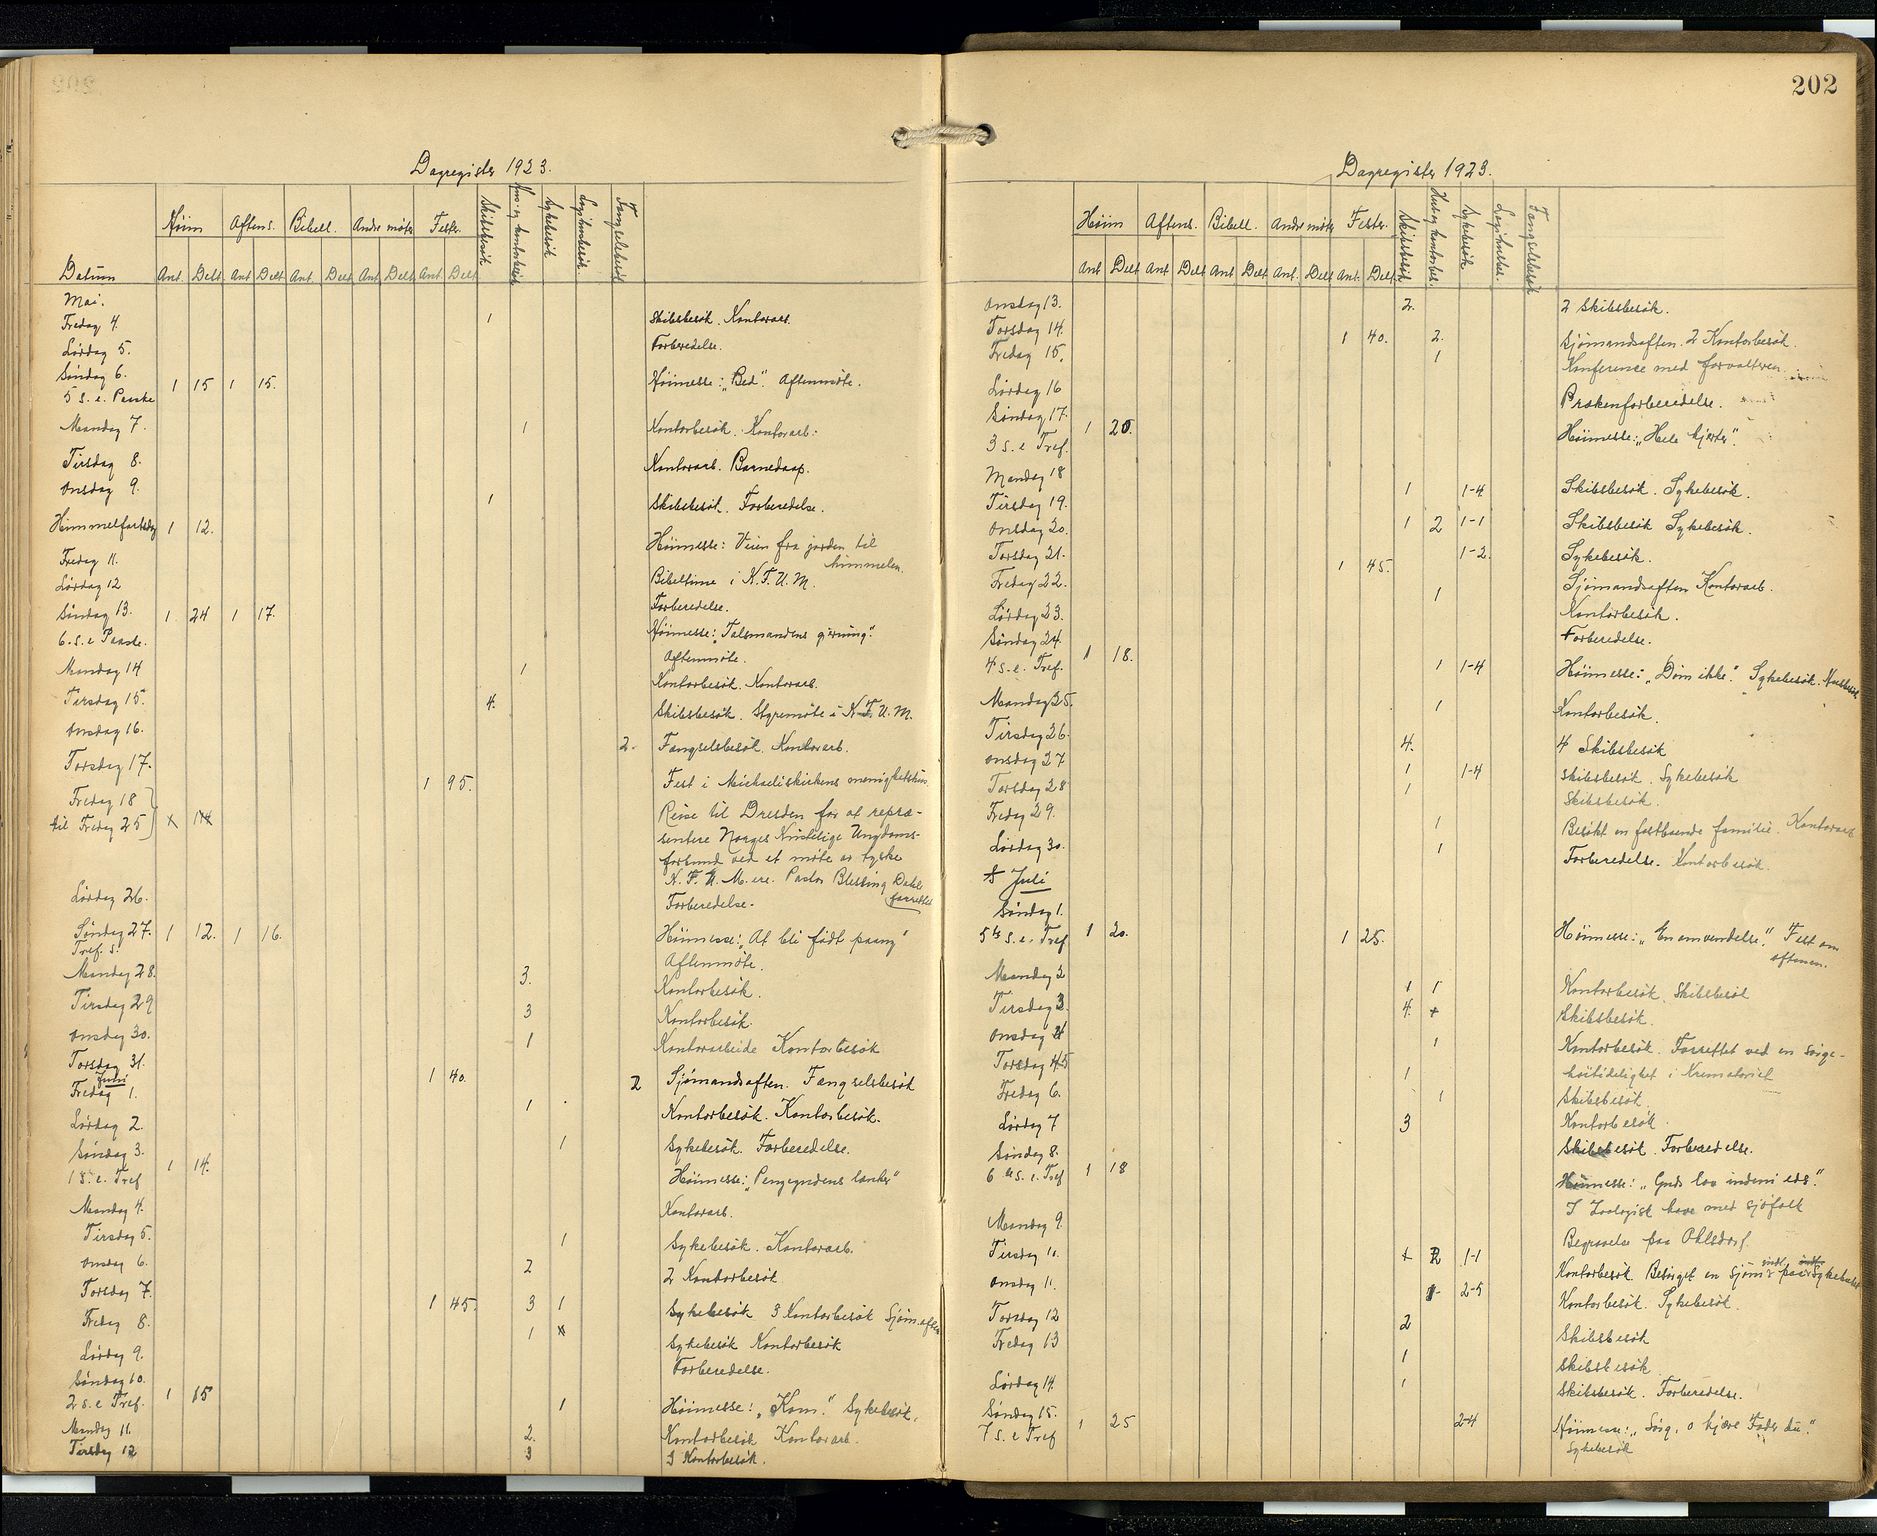 Dagregister 1923.
Høim Aftens. Bibell. Andre møter Fester. Skibsbesøk Hus- og kontorbesøk Sykebesøk Logihusbesøk Fangselsbesøk
Datum Ant. Delt. Ant Delt Ant. Delt. Ant. Delt. Ant. Delt.
Mai.
Fredag 4. 1 Skibsbesøk. Kontorarb.
Lørdag 5. Forberedelse.
Søndag 6. 5 s. e. Paaske 1 15 1 15. Høimesse: "Bed". Aftenmøte.
Mandag 7. 1 Kontorbesøk. Kontorarb.
Tirsdag 8. Kontorarb. Barnedaap.
Onsdag 9. 1 Skibsbesøk. Forberedelse.
Himmelfartsdag 1 12. Høimesse: Veien fra jorden til himmelen.
Fredag 11. Bibeltime i K.F.U.M.
Lørdag 12 Forberedelse.
Søndag 13. 6. s. e Paaske. 1 24 1 17. Høimesse: "Talsmandens gjerning".
Aftenmøte.
Mandag 14 1 Kontorbesøk. Kontorarb.
Tirsdag 15. 4. Skibsbesøk. Styremøte i K.F.U.M.
Onsdag 16. 2. Fangselsbesøk. Kontorarb.
Torsdag 17. 1 95. Fest i Michaeliskirkens menighetshus.
Fredag 18
til Fredag 25 Reise til Dresden for at repræ-
sentere Norges Kristelige Ungdoms-
forbund ved et møte av tyske
K.F.U.M.ere. Pastor Blessing Dahle
forrettet
Lørdag 26. Forberedelse.
Søndag 27. Tref. s. 1 12. 1 16. Høimesse: "At bli født paany"
Aftenmøte.
Mandag 28. 3. Kontorbesøk.
Tirsdag 29 3 Kontorbesøk.
Onsdag 30. 1 Kontorarbeide Kontorbesøk
Torsdag 31. 1 40. 2 Sjømandsaften. Fangselsbesøk
Juni
Fredag 1. 1 Kontorbesøk. Kontorbesøk.
Lørdag 2. 1 Sykebesøk. Forberedelse.
Søndag 3. 1 s. e. Tref 1 14. Høimesse: "Pengegudens lænker"
Mandag 4. Kontorarb.
Tirsdag 5. 1 Sykebesøk. Kontorarb.
Onsdag 6. 2 2 Kontorbesøk
Torsdag 7. 1 45. 3 1 Sykebesøk 3 Kontorbesøk Sjøm.aften
Fredag 8. 1 Sykebesøk Kontorbesøk
Lørdag 9. Forberedelse.
Søndag 10. 2 s. e Tref. 1 15 1 Høimesse: "Kom." Sykebesøk.
Mandag 11. 2. Kontorbesøk Kontorarb.
Tirsdag 12 3 3 Kontorbesøk.
202
Dagregister 1923.
Høim Aftens. Bibell. Andre møter Fester. Skibsbesøk Hus og kontorbes. Sykebesøk Logihusbes. Fangselsbesøk
Ant Delt Ant Delt Ant. Delt Ant. Delt Ant. Delt.
Onsdag 13. 2. 2 Skibsbesøk.
Torsdag 14. 1 40. 2. Sjømandsaften. 2 Kontorbesøk.
Fredag 15. 1 Konference med forvalteren
Lørdag 16 Prækenforberedelse.
Søndag 17. 3 s. e Tref. 1 20. Høimesse: "Hele hjertet".
Mandag 18 1 1-4 Skibsbesøk. Sykebesøk.
Tirsdag 19. 1 2 1-1 Skibsbesøk Sykebesøk.
Onsdag 20. 1-2. Sykebesøk.
Torsdag 21. 1 45. Sjømandsaften Kontorarb.
Fredag 22. 1 Kontorbesøk.
Lørdag 23. Forberedelse.
Søndag 24. 4 s. e. Tref. 1 18. 1 1-4 Høimesse: "Døm ikke." Sykebesøk. Husbesøk
Mandag 25. 1 Kontorbesøk.
Tirsdag 26. 4. 4 Skibsbesøk
Onsdag 27 1 1-4 Skibsbesøk. Sykebesøk
Torsdag 28 1 Skibsbesøk.
Fredag 29. 1 Besøkt en fastboende familie. Kontorarb
Lørdag 30. 1 Forberedelse. Kontorbesøk.
Juli
Søndag 1. 5te s. e. Tref 1 20. 1 25. Høimesse: "En omvendelse". Fest om
aftenen.
Mandag 2 1 1 Kontorbesøk. Skibsbesøk
Tirsdag 3. 4. Skibsbesøk.
Onsdag 4 1 Kontorbesøk. Forrettet ved en sørge-
høitidelighet i Krematoriet
Torsdag 5 1 Skibsbesøk.
Fredag 6. 1 Kontorbesøk.
Lørdag 7 3 Skibsbesøk. Forberedelse.
Søndag 8. 6 te s. e. Tref 1 18 Høimesse: "Guds lov indeni eds".
I Zoologisk have med sjøfolk
Mandag 9. Begravelse paa Ohlsdorf.
Tirsdag 10. 2 1-1 Kontorbesøk. Besørget en sjøm. indl. paa Sykehuset
Onsdag 11. 1 2-5 Kontorbesøk. Sykebesøk.
Torsdag 12 2 Skibsbesøk
Fredag 13 1 Skibsbesøk
Lørdag 14. 1 Skibsbesøk. Forberedelse.
Søndag 15. 7 s. e Tref 1 25 2-4 Høimesse: "Sørg, o kjære Fader du".
Sykebesøk